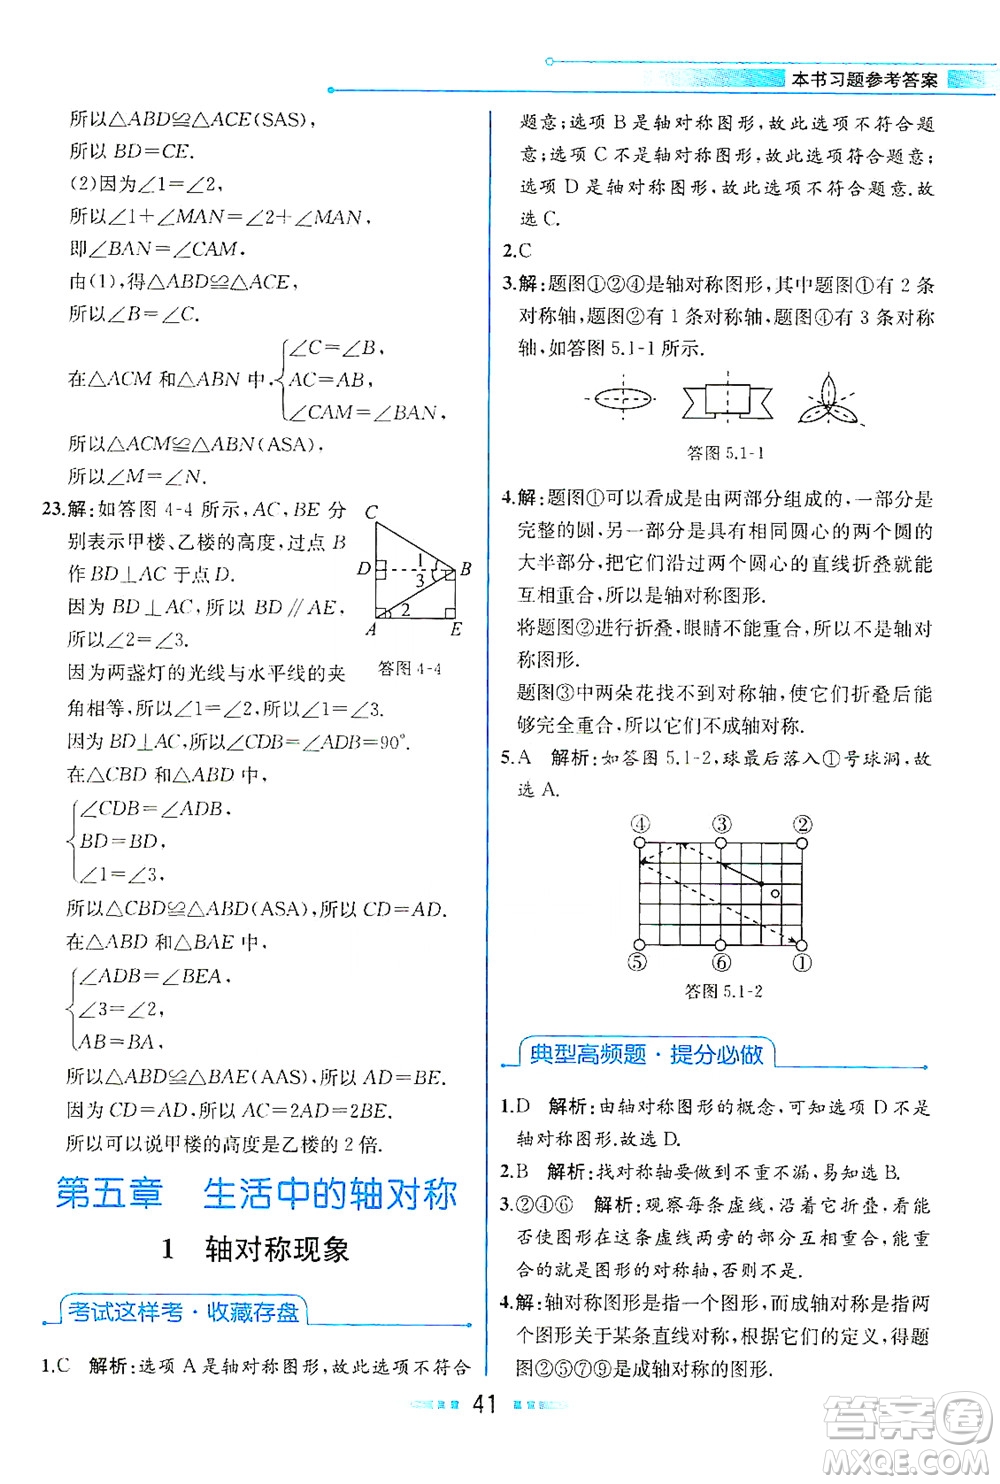 本书习题参考答案
所以△ABD≌△ACE(SAS),
所以 BD=CE.
(2)因为∠1=∠2,
所以∠1+∠MAN=∠2+∠MAN,
即∠BAN=∠CAM.
由(1),得△ABD≌△ACE,
所以∠B=∠C.
∠C=∠B,
在△ACM 和△ABN 中, AC=AB,
∠CAM=∠BAN,
所以△ACM≌△ABN(ASA),
所以∠M=∠N.
23.解:如答图 4-4 所示,AC,BE 分
别表示甲楼、乙楼的高度,过点 B
作 BD⊥AC 于点 D.
因为 BD⊥AC,所以 BD∥AE,
所以∠2=∠3.
因为两盏灯的光线与水平线的夹
角相等,所以∠1=∠2,所以∠1=∠3.
C
D
1
3
B
2
A
E
答图 4-4
因为 BD⊥AC,所以∠CDB=∠ADB=90°.
在△CBD 和△ABD 中,
∠CDB=∠ADB,
BD=BD,
∠1=∠3,
所以△CBD≌△ABD(ASA),所以 CD=AD.
在△ABD 和△BAE 中,
∠ADB=∠BEA,
∠3=∠2,
AB=BA,
所以△ABD≌△BAE(AAS),所以 AD=BE.
因为 CD=AD,所以 AC=2AD=2BE.
所以可以说甲楼的高度是乙楼的 2 倍.
第五章 生活中的轴对称
1 轴对称现象
考试这样考·收藏存盘
1.C 解析:选项 A 是轴对称图形,故此选项不符合
题意;选项 B 是轴对称图形,故此选项不符合题
意;选项 C 不是轴对称图形,故此选项符合题意;
选项 D 是轴对称图形,故此选项不符合题意.故
选 C.
2.C
3.解:题图①②④是轴对称图形,其中题图①有 2 条
对称轴,题图②有 1 条对称轴,题图④有 3 条对称
轴,如答图 5.1-1 所示.
答图 5.1-1
4.解:题图①可以看成是由两部分组成的,一部分是
完整的圆,另一部分是具有相同圆心的两个圆的
大半部分,把它们沿过两个圆心的直线折叠就能
互相重合,所以是轴对称图形.
将题图②进行折叠,眼睛不能重合,所以不是轴对
称图形.
题图③中两朵花找不到对称轴,使它们折叠后能
够完全重合,所以它们不成轴对称.
5.A 解析:如答图 5.1-2,球最后落入①号球洞,故
选 A.
④ ③ ②
⑤ ⑥ ①
答图 5.1-2
典型高频题·提分必做
1.D 解析:由轴对称图形的概念,可知选项 D 不是
轴对称图形.故选 D.
2.B 解析:找对称轴要做到不重不漏,易知选 B.
3.②④⑥ 解析:观察每条虚线,沿着它折叠,看能
否使图形在这条虚线两旁的部分互相重合,能的
就是图形的对称轴,否则不是.
4.解:轴对称图形是指一个图形,而成轴对称是两个
图形关于某条直线对称,根据它们的定义,得题
图②⑤⑦⑨是成轴对称的图形.
41
答案圈
MXQE.COM